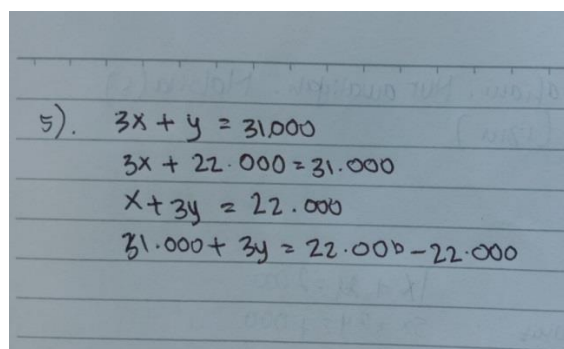 5). 3x + y = 31.000
3x + 22.000 = 31.000
x + 3y = 22.000
31.000 + 3y = 22.000 - 22.000